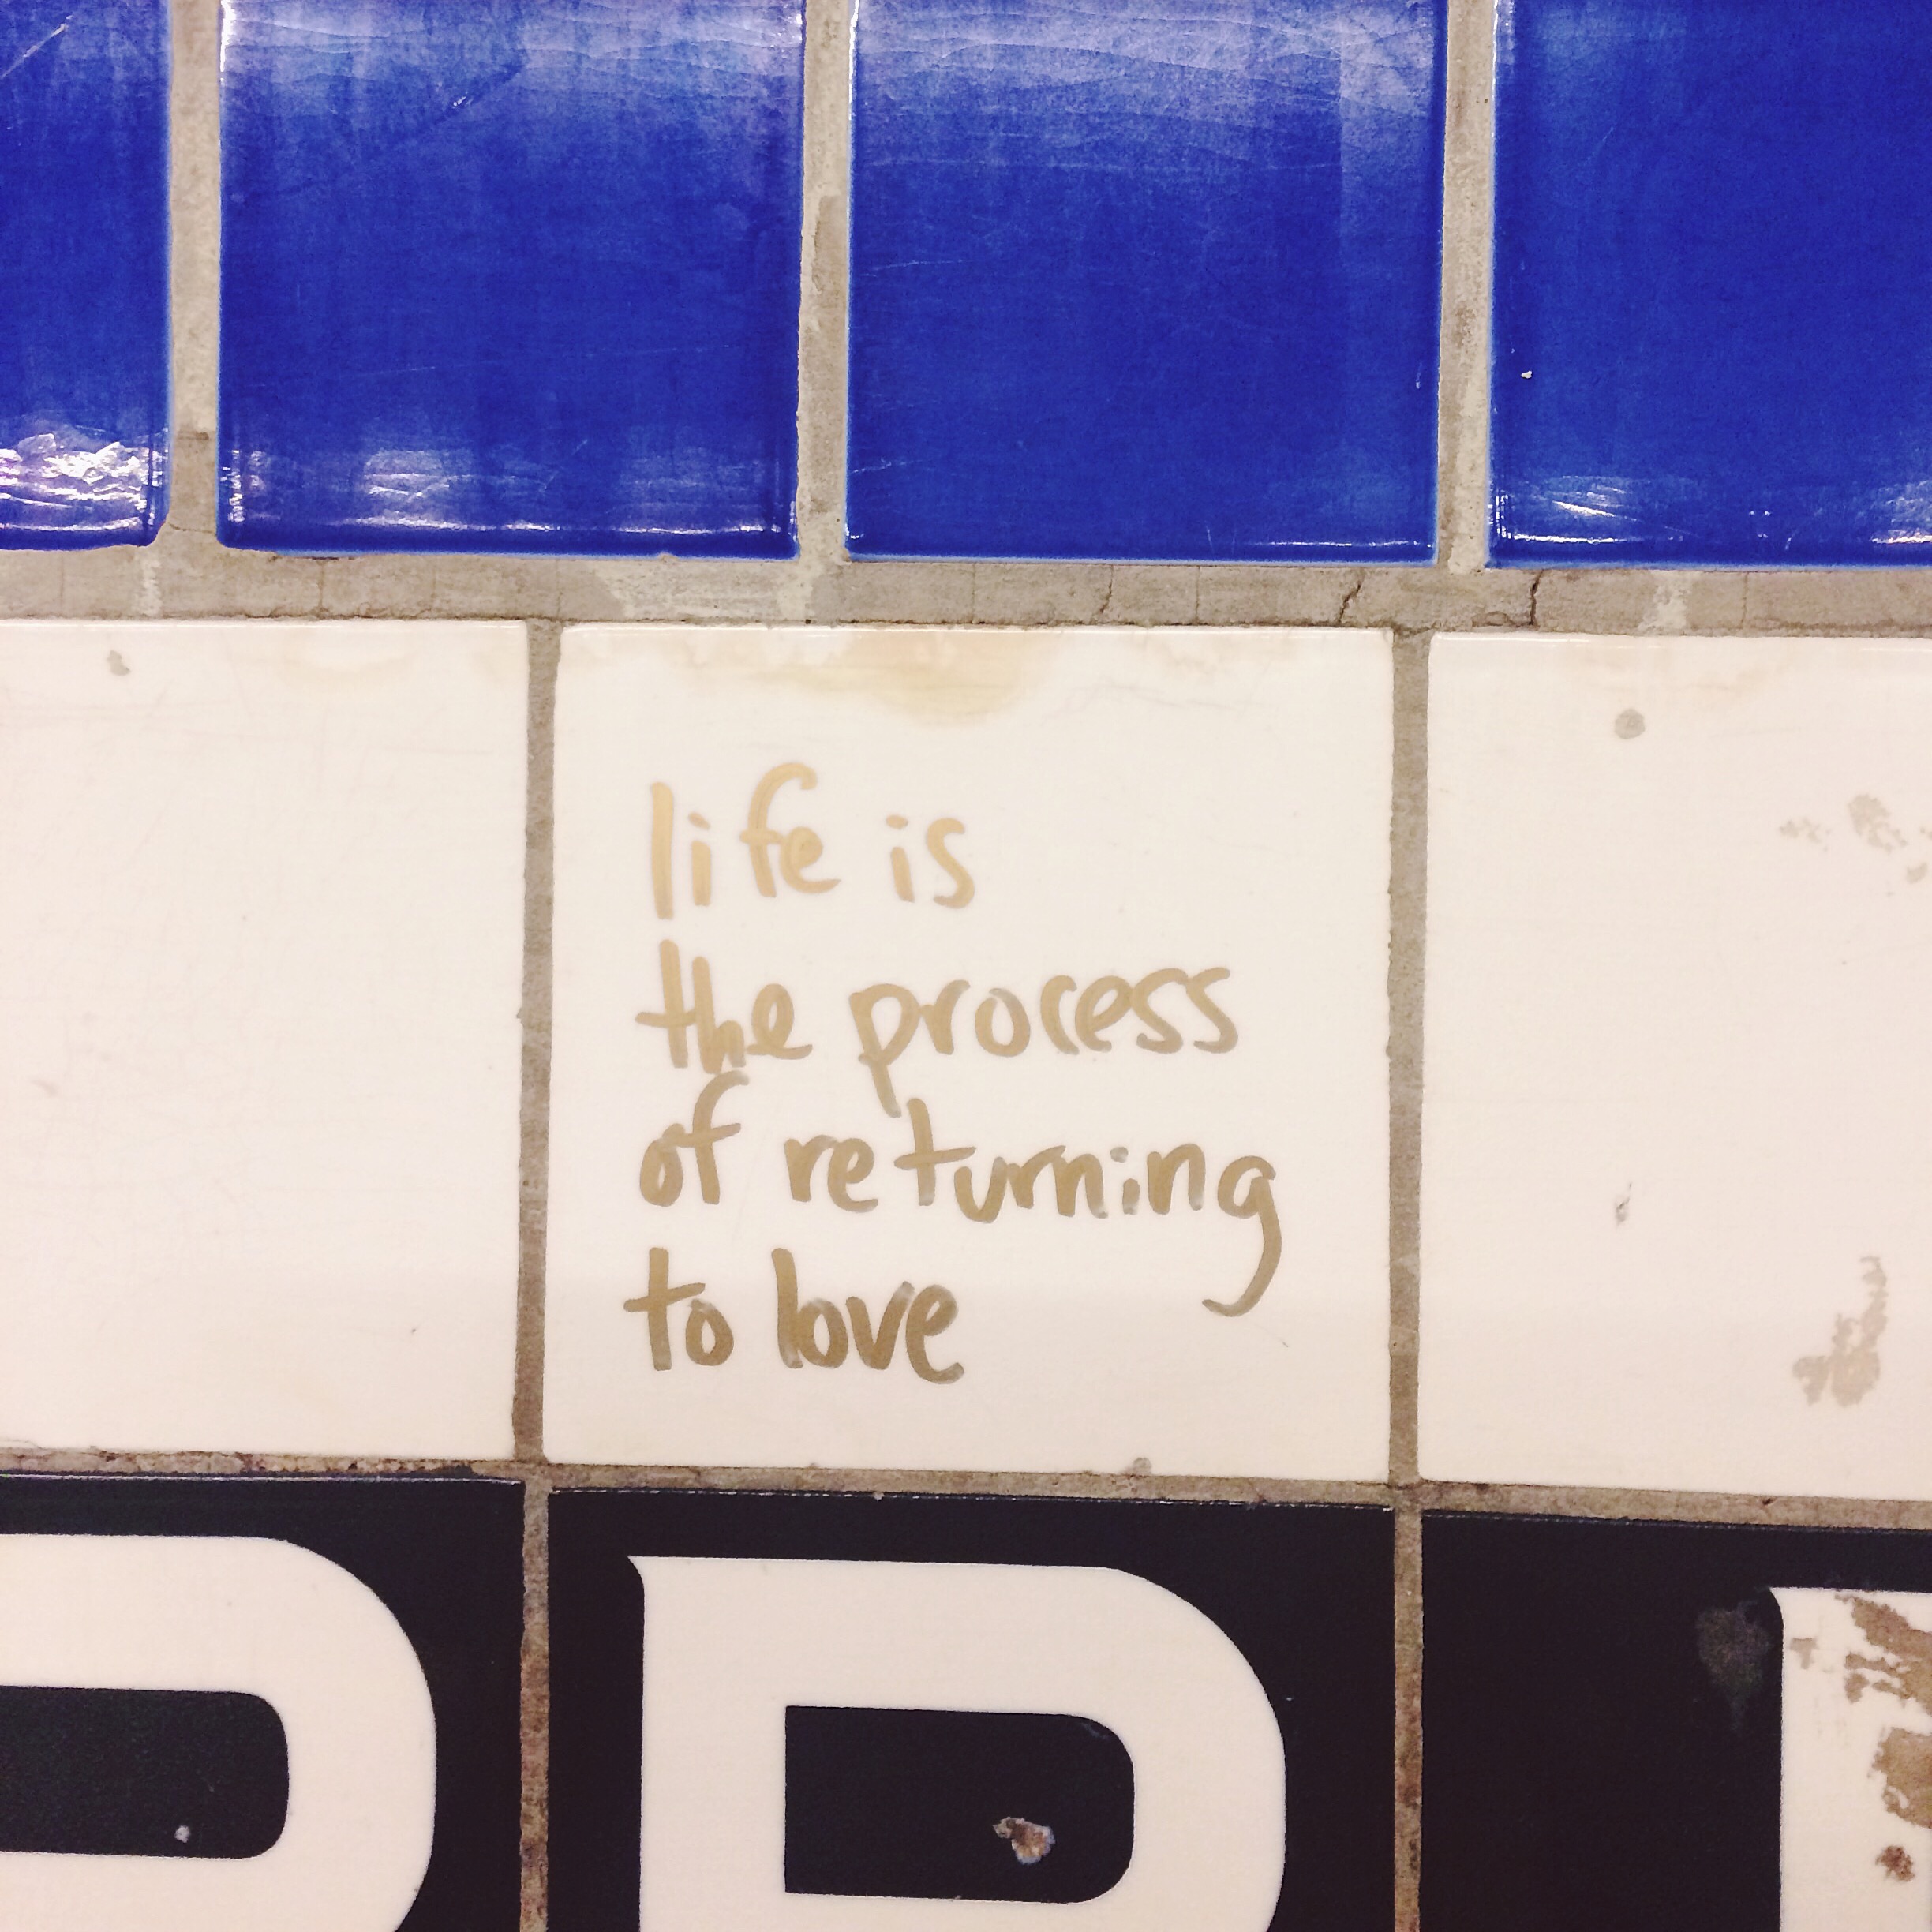 life is
the process
of returning
to love